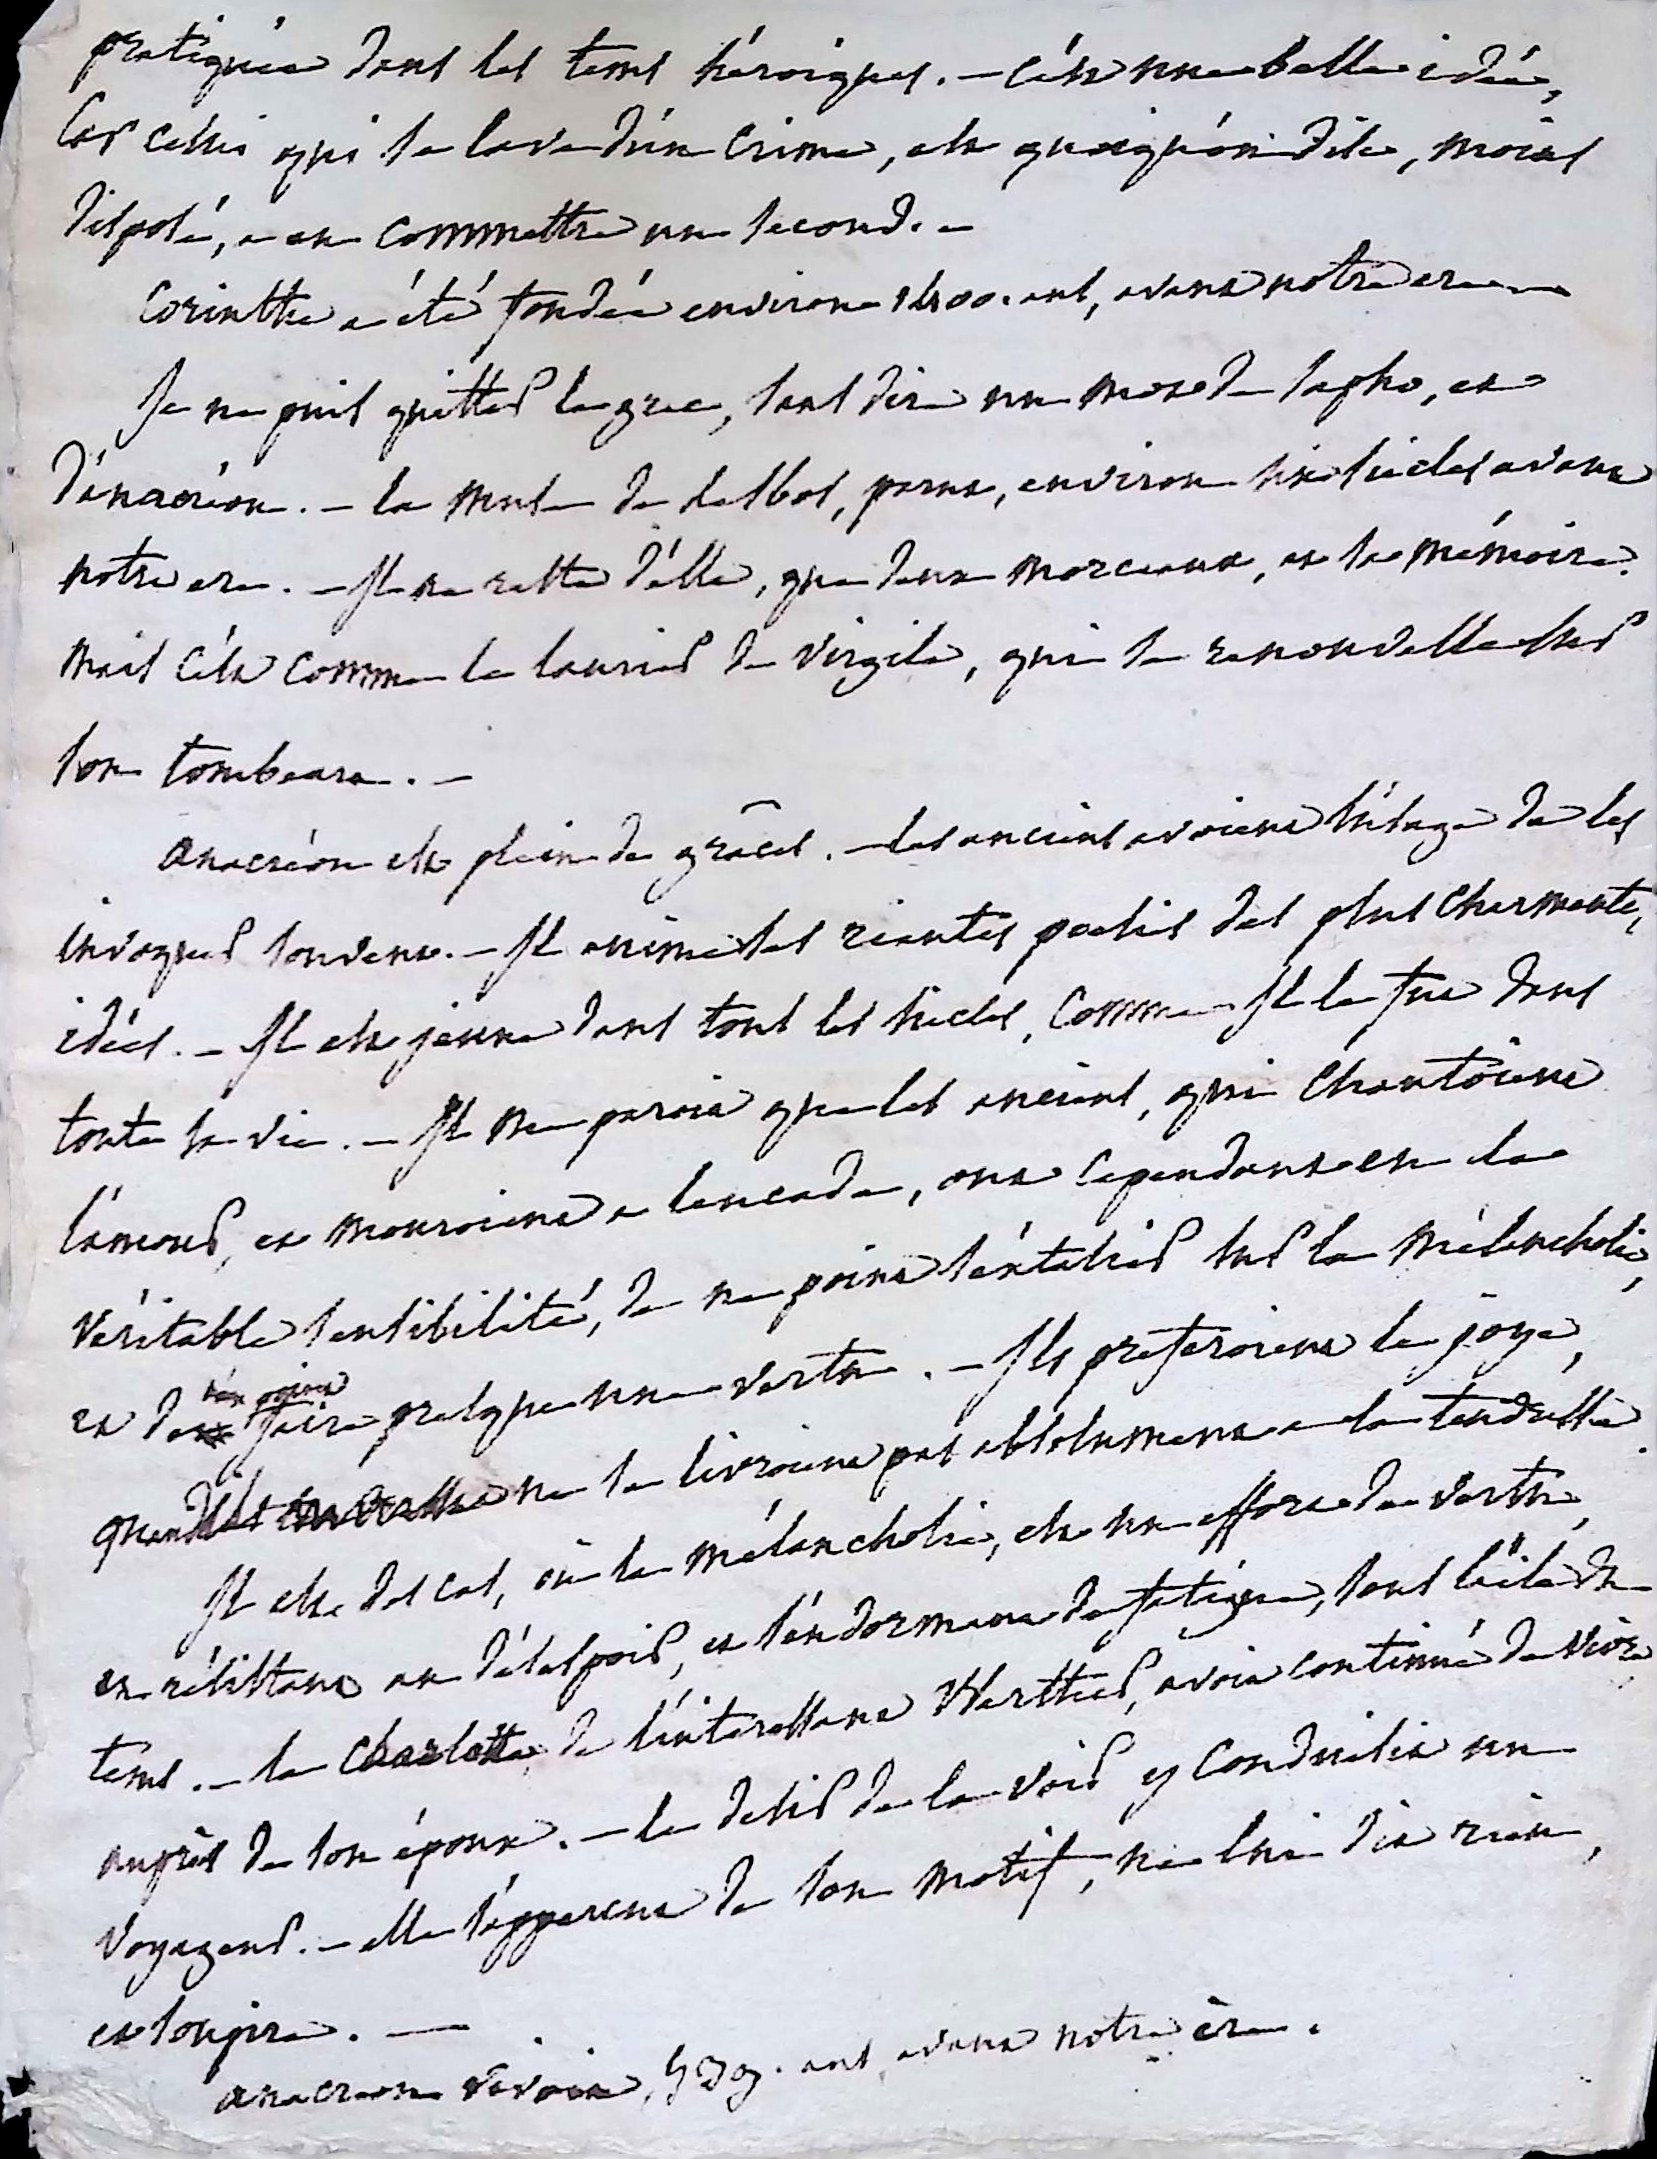 pratiquée dans les tems héroiques. – c'est une belle idée,
car celui qui se lave d'un crime, est quoiqu'on dise, moins
disposé, a en commettre un second. –
Corinthe a été fondée environ 1400. ans, avant notre ere –
Je ne puis quitter la grece, sans dire un mot de sapho, et
d'anacréon. – la muse de lesbos, parut, environ six siecles avant
notre ere. – Il ne reste d'elle, que deux morceaux, et sa mémoire.
mais c'est comme le laurier de virgile, qui se renouvelle sur
son tombeau. –
anacréon est plein de grâces. – les anciens avoient l'usage de les
invoquer souvent. – Il anime ses riantes poesies des plus charmantes
idées. – Il est jeune dans tous les siecles, comme Il le fut dans
toute sa vie. – Il me paroit que les anciens, qui chantoient
l'amour, et mouroient a leucade, ont cependant en la
véritable sensibilité, de ne point s'extasier sur la mélancholie,
et de n'en point faire presque une vertu. – Ils preferoient la joye,
quand Ils ne se livroient pas absolument a la tendresse.
Il est des cas, où la mélancholie, est un effort de vertu,
en résistant au désespoir, et s'endormant de fatigue, sous l'aile du
tems. – la Charlotte, de l'interessant Werther, avoit continué de vivre
auprès de son époux. – le desir de la voir y conduisit un
voyageur. – elle s'apperçut de son motif, ne lui dit rien,
et soupira. –
anacreon vivoit, 532. ans, avant notre ère.